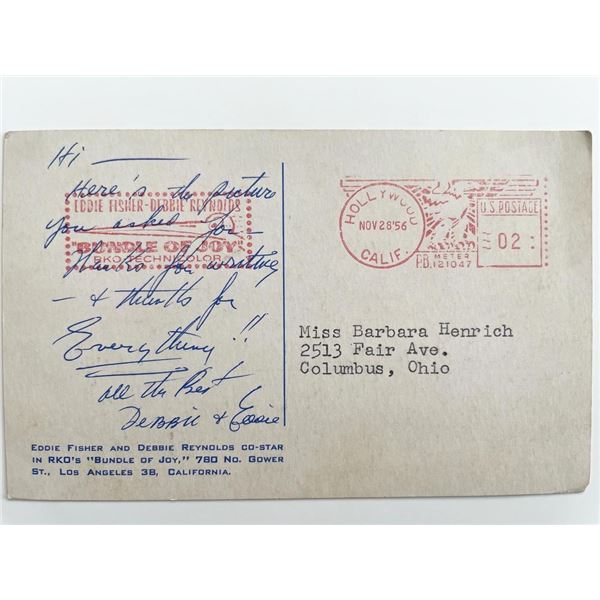 Hi —
Here's the picture
EDDIE FISHER-DEBBIE REYNOLDS
you asked for —
"BUNDLE OF JOY"
RKO TECHNICOLOR
Thanks for writing
— & thanks for
Everything!!
all the Best
Debbie & Eddie
EDDIE FISHER AND DEBBIE REYNOLDS CO-STAR
IN RKO'S "BUNDLE OF JOY," 780 NO. GOWER
ST., LOS ANGELES 38, CALIFORNIA.
HOLLYWOOD
NOV 28 '56
CALIF.
U.S. POSTAGE
02
P.B. METER
121047
Miss Barbara Henrich
2513 Fair Ave.
Columbus, Ohio